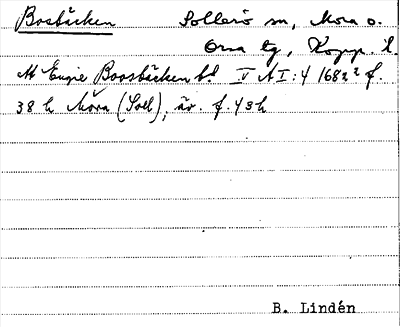 Bosbäcken Sollerö sn, Mora o.
Orsa tg, Kopp. l.
At Engie Boosbäcken bd IV A I:4 1682 f.
38 h Mora (Soll), äv. f. 43 h
B. Lindén